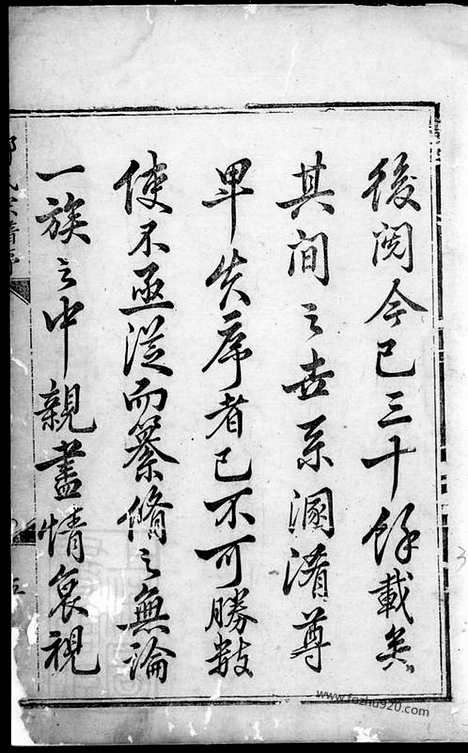 後閱今已三十餘載矣
其間之世系溷淆尊
卑失序者已不可勝數
使不亟從而纂脩之無論
一族之中親盡情衰視
www.fozhu920.com